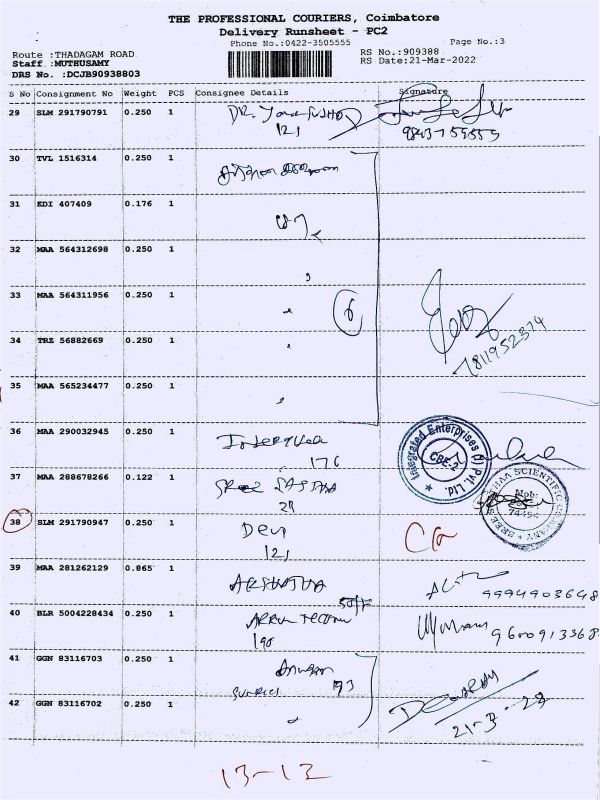 THE PROFESSIONAL COURIERS, Coimbatore
Delivery Runsheet - PC2
Phone No.:0422-3505555
Page No.:3
Route :THADAGAM ROAD
RS No.:909388
Staff :MUTHUSAMY
RS Date:21-Mar-2022
DRS No. :DCJB90938803
S No Consignment No Weight PCS Consignee Details Signature
29 SLM 291790791 0.250 1 DR.
121
30 TVL 1516314 0.250 1
31 EDI 407409 0.176 1
32 MAA 564312698 0.250 1
33 MAA 564311956 0.250 1 6
34 TRZ 56882669 0.250 1
7811952374
35 MAA 565234477 0.250 1
36 MAA 290032945 0.250 1
176
Integrated Enterprises (I) Pvt. Ltd. CBE-2
37 MAA 288678266 0.122 1 SREE SASTHA
SCIENTIFIC COMPANY
38 SLM 291790947 0.250 1 Devi CG
121
39 MAA 281262129 0.865 1 AKSHATHA
soft 9994903648
40 BLR 5004228434 0.250 1
190 9600913368
41 GGN 83116703 0.250 1
93
42 GGN 83116702 0.250 1
21-3-22
13-12